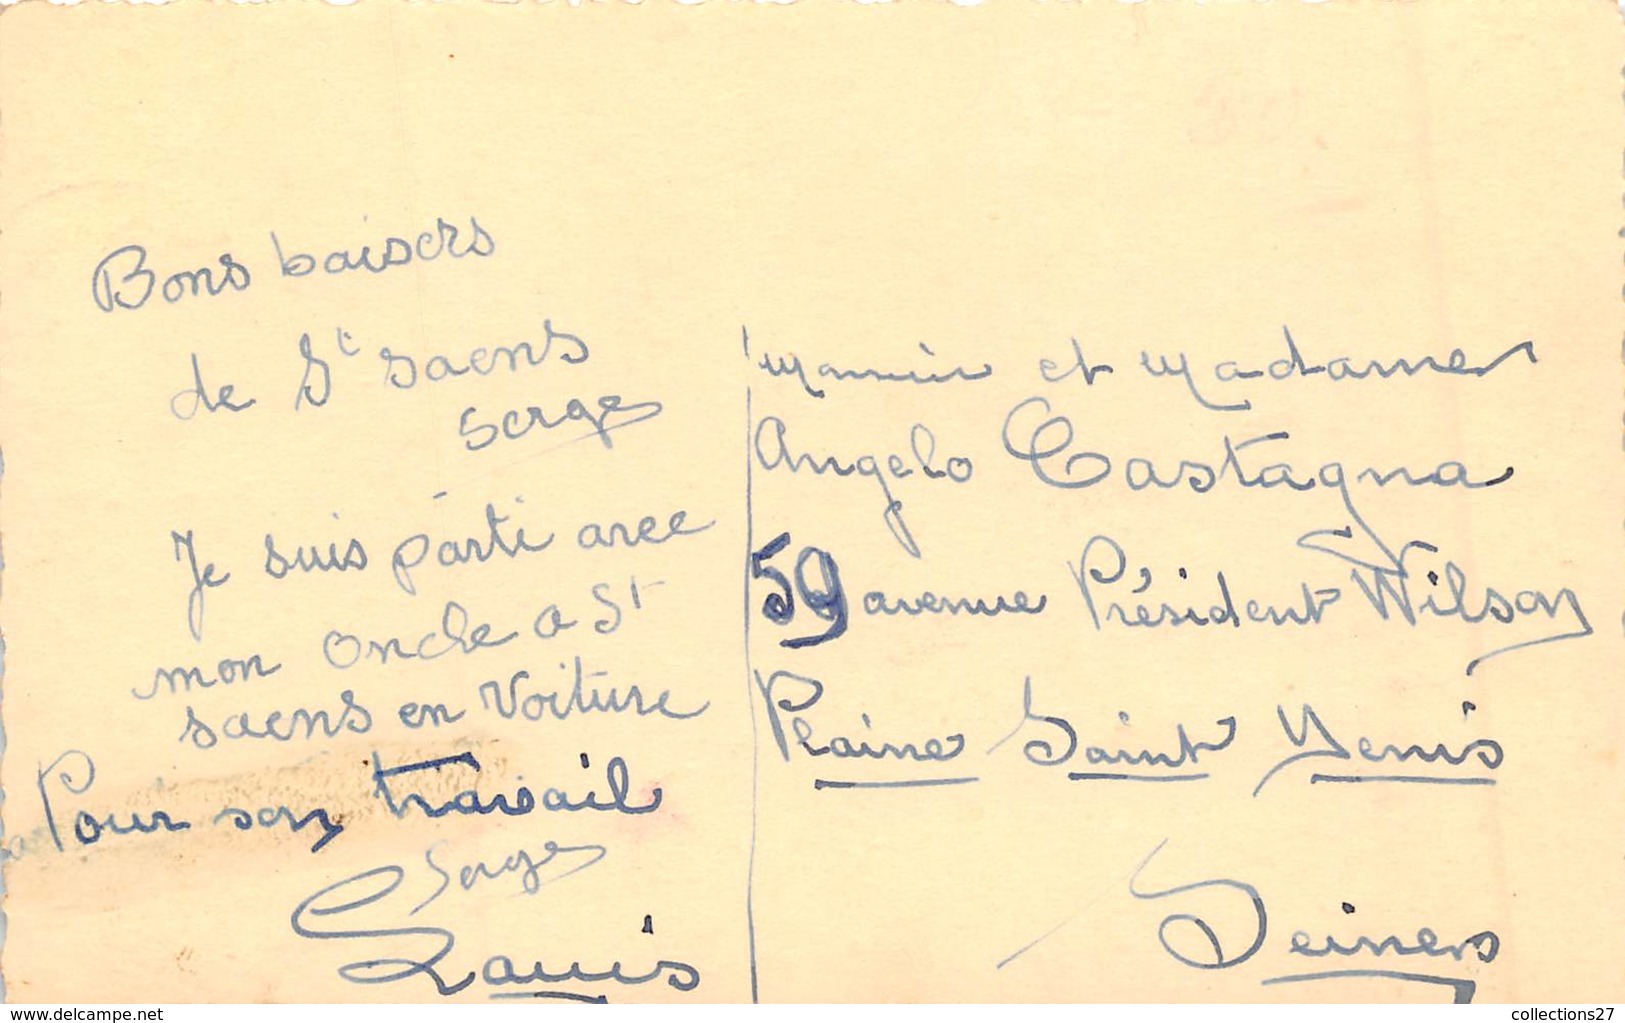 Bons baisers
de St saens
serge
Je suis parti avec
mon oncle a St
saens en voiture
Pour son travail
Serge
Louis
Monsieur et Madame
Angelo Castagna
59 avenue Président Wilson
Plaine Saint Denis
Seine
www.delcampe.net
collections27